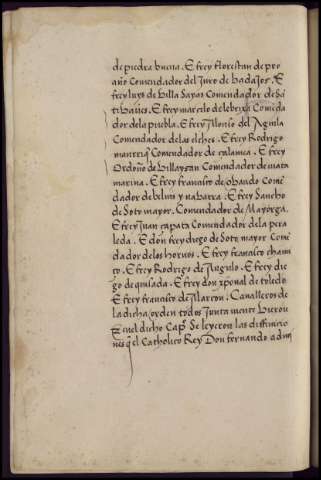 de piedra buena. E frey florestan de pro
año Comendador del Juro de badajos. E
frey luys de Villa Sayas Comendador de Sã
tibañes. E frey marcelo de lebrixa Comẽda
dor dela puebla. E frey Alonso del Aguila
Comendador delas elches. E frey Rodrigo
manrriq̃ Comendador de calamea. E frey
Ordoño de Villaquiran Comendador de mata
marina. E frey francisco de obando Comẽ
dador de beluis y nabarra. E frey Sancho
de Soto mayor. Comendador de Mayorga.
E frey Juan capata Comendador dela pera
leda. E don frey diego de Soto mayor Comẽ
dador delos hornos. E frey francisco cham
ço. E frey Rodrigo de Angulo. E frey die
go de quesada. E frey don xp̃oual de toledo.
E frey francisco de Alarcon. Caualleros de
la dicha orden todos Junta mente Vieron
E en el dicho Cap̃o Se leyeron las diffinicio
nes q̃ el Catholico Rey Don fernando admi